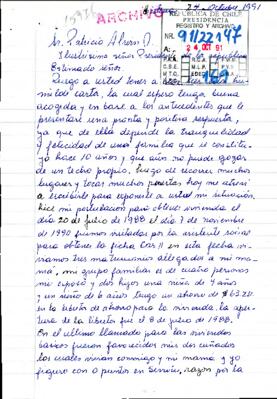 ARCHIVO
REPUBLICA DE CHILE
PRESIDENCIA
REGISTRO Y ARCHIVO
NR. 91/22147
24 OCT 91
Octubre 1991
Sr. Patricio Alwin A.
Ilustrísimo señor Presidente
Estimado señor
Ruego a usted tener a
mi de carta, la cual espero tenga buena
acogida y en base a los antecedentes que le
presentaré una pronta y positiva respuesta,
ya que de ella depende la tranquilidad
y felicidad de una familia que se constitu-
yó hace 10 años y que aún no puede gozar
de un techo propio, luego de recorrer muchos
lugares y tocar muchas puertas hoy me atreví
a escribirle para exponerle a usted mi situación,
hice mi postulación para obtener vivienda el
día 20 de julio de 1988 el día 7 de noviembre
de 1990 fuimos visitados por la asistente social
para obtener la ficha Cas II en esta fecha vi-
víamos tres matrimonios allegados a mi ma-
má, mi grupo familiar es de cuatro personas
mi esposo y dos hijos una niña de 9 años
y un niño de 6 años tengo un ahorro de
en la libreta de ahorro para la vivienda, la aper-
tura de la libreta fue el 8 de julio de 1988.
En el último llamado para las viviendas
básicas fueron favorecidos mis dos cuñados
los cuales vivían conmigo y mi mamá y yo
figuro con 0 puntos en Serviu, razón por la